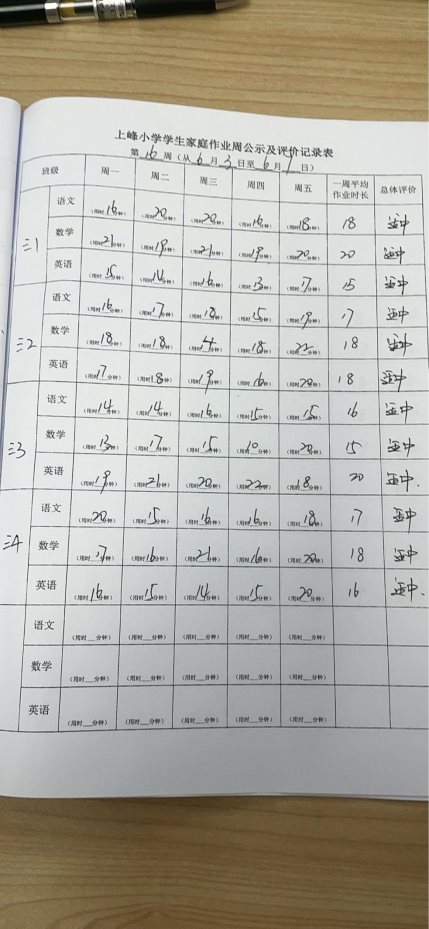 上峰小学学生家庭作业周公示及评价记录表
第 16 周（从 6 月 3 日至 6 月 7 日）
班级 周一 周二 周三 周四 周五 一周平均作业时长 总体评价
三1 语文 （用时16分钟） （用时20分钟） （用时20分钟） （用时16分钟） （用时18分钟） 18 适中
数学 （用时21分钟） （用时19分钟） （用时21分钟） （用时19分钟） （用时20分钟） 20 适中
英语 （用时15分钟） （用时14分钟） （用时16分钟） （用时13分钟） （用时17分钟） 15 适中
三2 语文 （用时16分钟） （用时17分钟） （用时18分钟） （用时15分钟） （用时19分钟） 17 适中
数学 （用时18分钟） （用时18分钟） （用时4分钟） （用时18分钟） （用时22分钟） 18 适中
英语 （用时17分钟） （用时18分钟） （用时19分钟） （用时16分钟） （用时20分钟） 18 适中
三3 语文 （用时14分钟） （用时14分钟） （用时16分钟） （用时15分钟） （用时15分钟） 16 适中
数学 （用时13分钟） （用时17分钟） （用时15分钟） （用时10分钟） （用时20分钟） 15 适中
英语 （用时19分钟） （用时21分钟） （用时20分钟） （用时22分钟） （用时18分钟） 20 适中.
三4 语文 （用时20分钟） （用时15分钟） （用时16分钟） （用时16分钟） （用时18分钟） 17 适中
数学 （用时17分钟） （用时16分钟） （用时21分钟） （用时16分钟） （用时20分钟） 18 适中
英语 （用时16分钟） （用时15分钟） （用时14分钟） （用时15分钟） （用时20分钟） 16 适中.
语文 （用时__分钟） （用时__分钟） （用时__分钟） （用时__分钟） （用时__分钟）
数学 （用时__分钟） （用时__分钟） （用时__分钟） （用时__分钟） （用时__分钟）
英语 （用时__分钟） （用时__分钟） （用时__分钟） （用时__分钟） （用时__分钟）